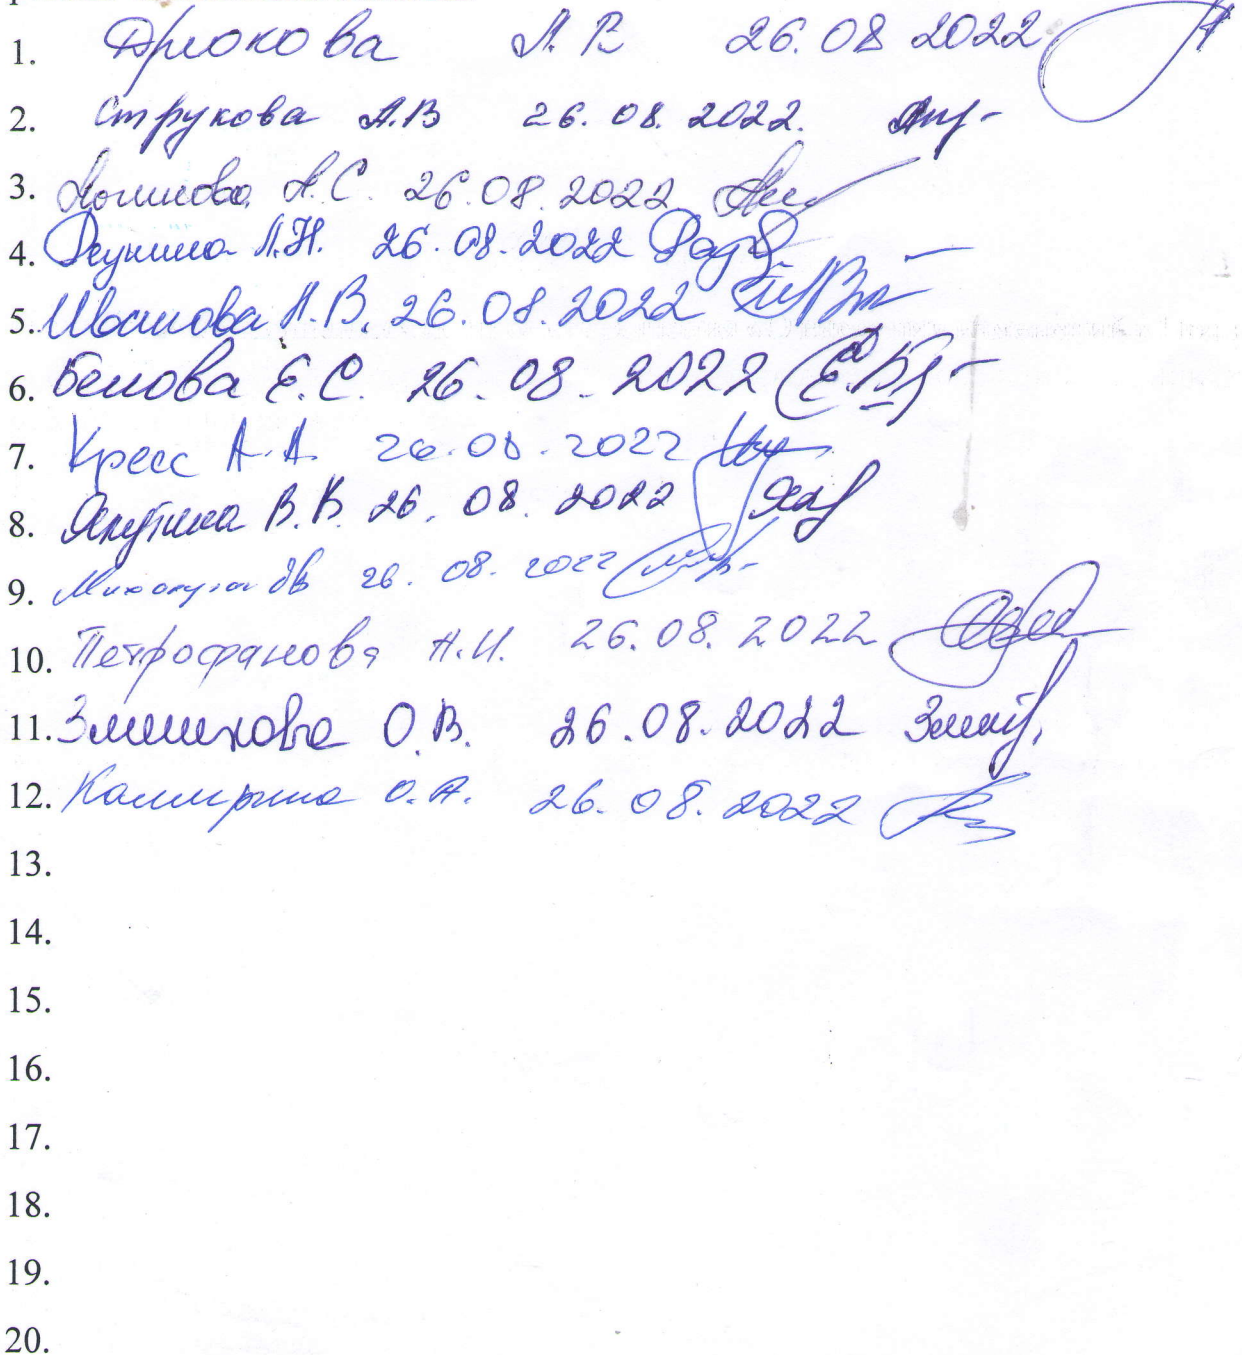 1. Дрюкова Л.В 26.08 2022
2. Струкова А.В 26.08.2022.
3. А.С. 26.08.2022
4. Л.Н. 26.08.2022
5. Иванова Л.В. 26.08.2022
6. Белова Е.С. 26.08.2022
7. Кресс А.А. 26.08.2022
8. Якутина В.В. 26.08.2022
9. 26.08.2022
10. Петрофанова Н.И. 26.08.2022
11. О.В. 26.08.2022
12. О.А. 26.08.2022
13.
14.
15.
16.
17.
18.
19.
20.